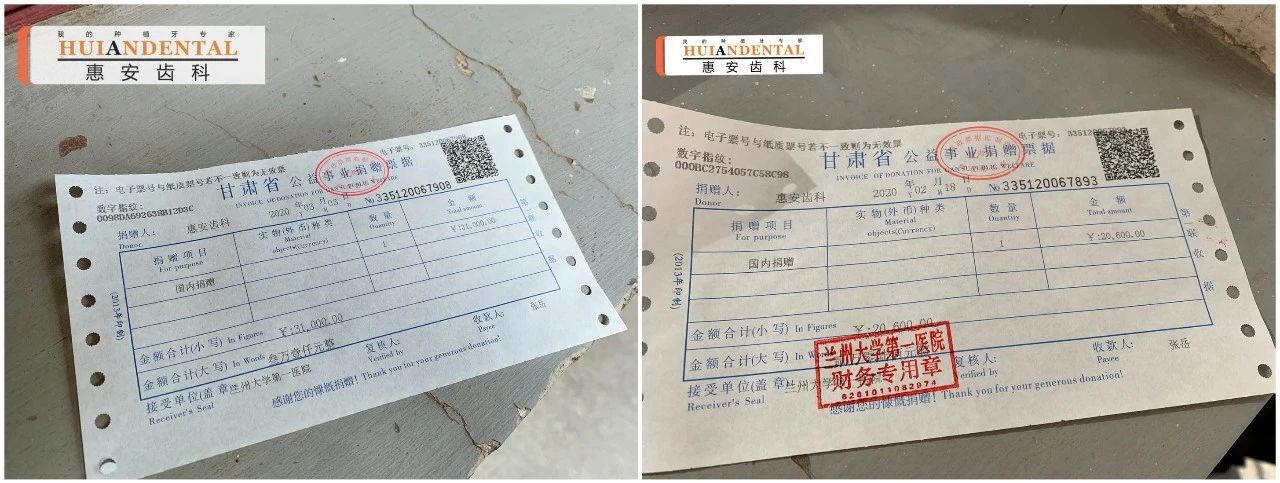 我的种植牙专家
HUIANDENTAL
惠安齿科
注：电子票号与纸质票号若不一致则为无效票
电子票号：335120067908
数字指纹：
0098DA692638B12D3C
甘肃省公益事业捐赠票据
INVOICE OF DONATION FOR GANSU PUBLIC WELFARE
捐赠人：
Donor
惠安齿科
2020 年 03 月 05 日
No 335120067908
捐赠项目
For purpose
实物(外币)种类
Material
objects(Currency)
数量
Quantity
金额
Total amount
国内捐赠
1
￥:31,000.00
金额合计(小写) In Figures ￥:31,000.00
金额合计(大写) In Words 叁万壹仟元整
接受单位(盖章) 兰州大学第一医院
Receiver's Seal
复核人：
Verified by
收款人：
Payee
张岳
感谢您的慷慨捐赠！Thank you for your generous donation!
(2013年印制)
第
联
收
据
我的种植牙专家
HUIANDENTAL
惠安齿科
注：电子票号与纸质票号若不一致则为无效票
电子票号：
数字指纹：
000BC2754057C58C98
甘肃省公益事业捐赠票据
INVOICE OF DONATION FOR GANSU PUBLIC WELFARE
捐赠人：
Donor
惠安齿科
2020 年 02 月 18 日
No 335120067893
捐赠项目
For purpose
实物(外币)种类
Material
objects(Currency)
数量
Quantity
金额
Total amount
国内捐赠
1
￥:20,600.00
金额合计(小写) In Figures ￥:20,600.00
金额合计(大写) In Words
接受单位(盖章) 兰州大学
Receiver's Seal
复核人：
Verified by
收款人：
Payee
张岳
感谢您的慷慨捐赠！Thank you for your generous donation!
兰州大学第一医院
财务专用章
6201011082974
(2013年印制)
第
联
收
据